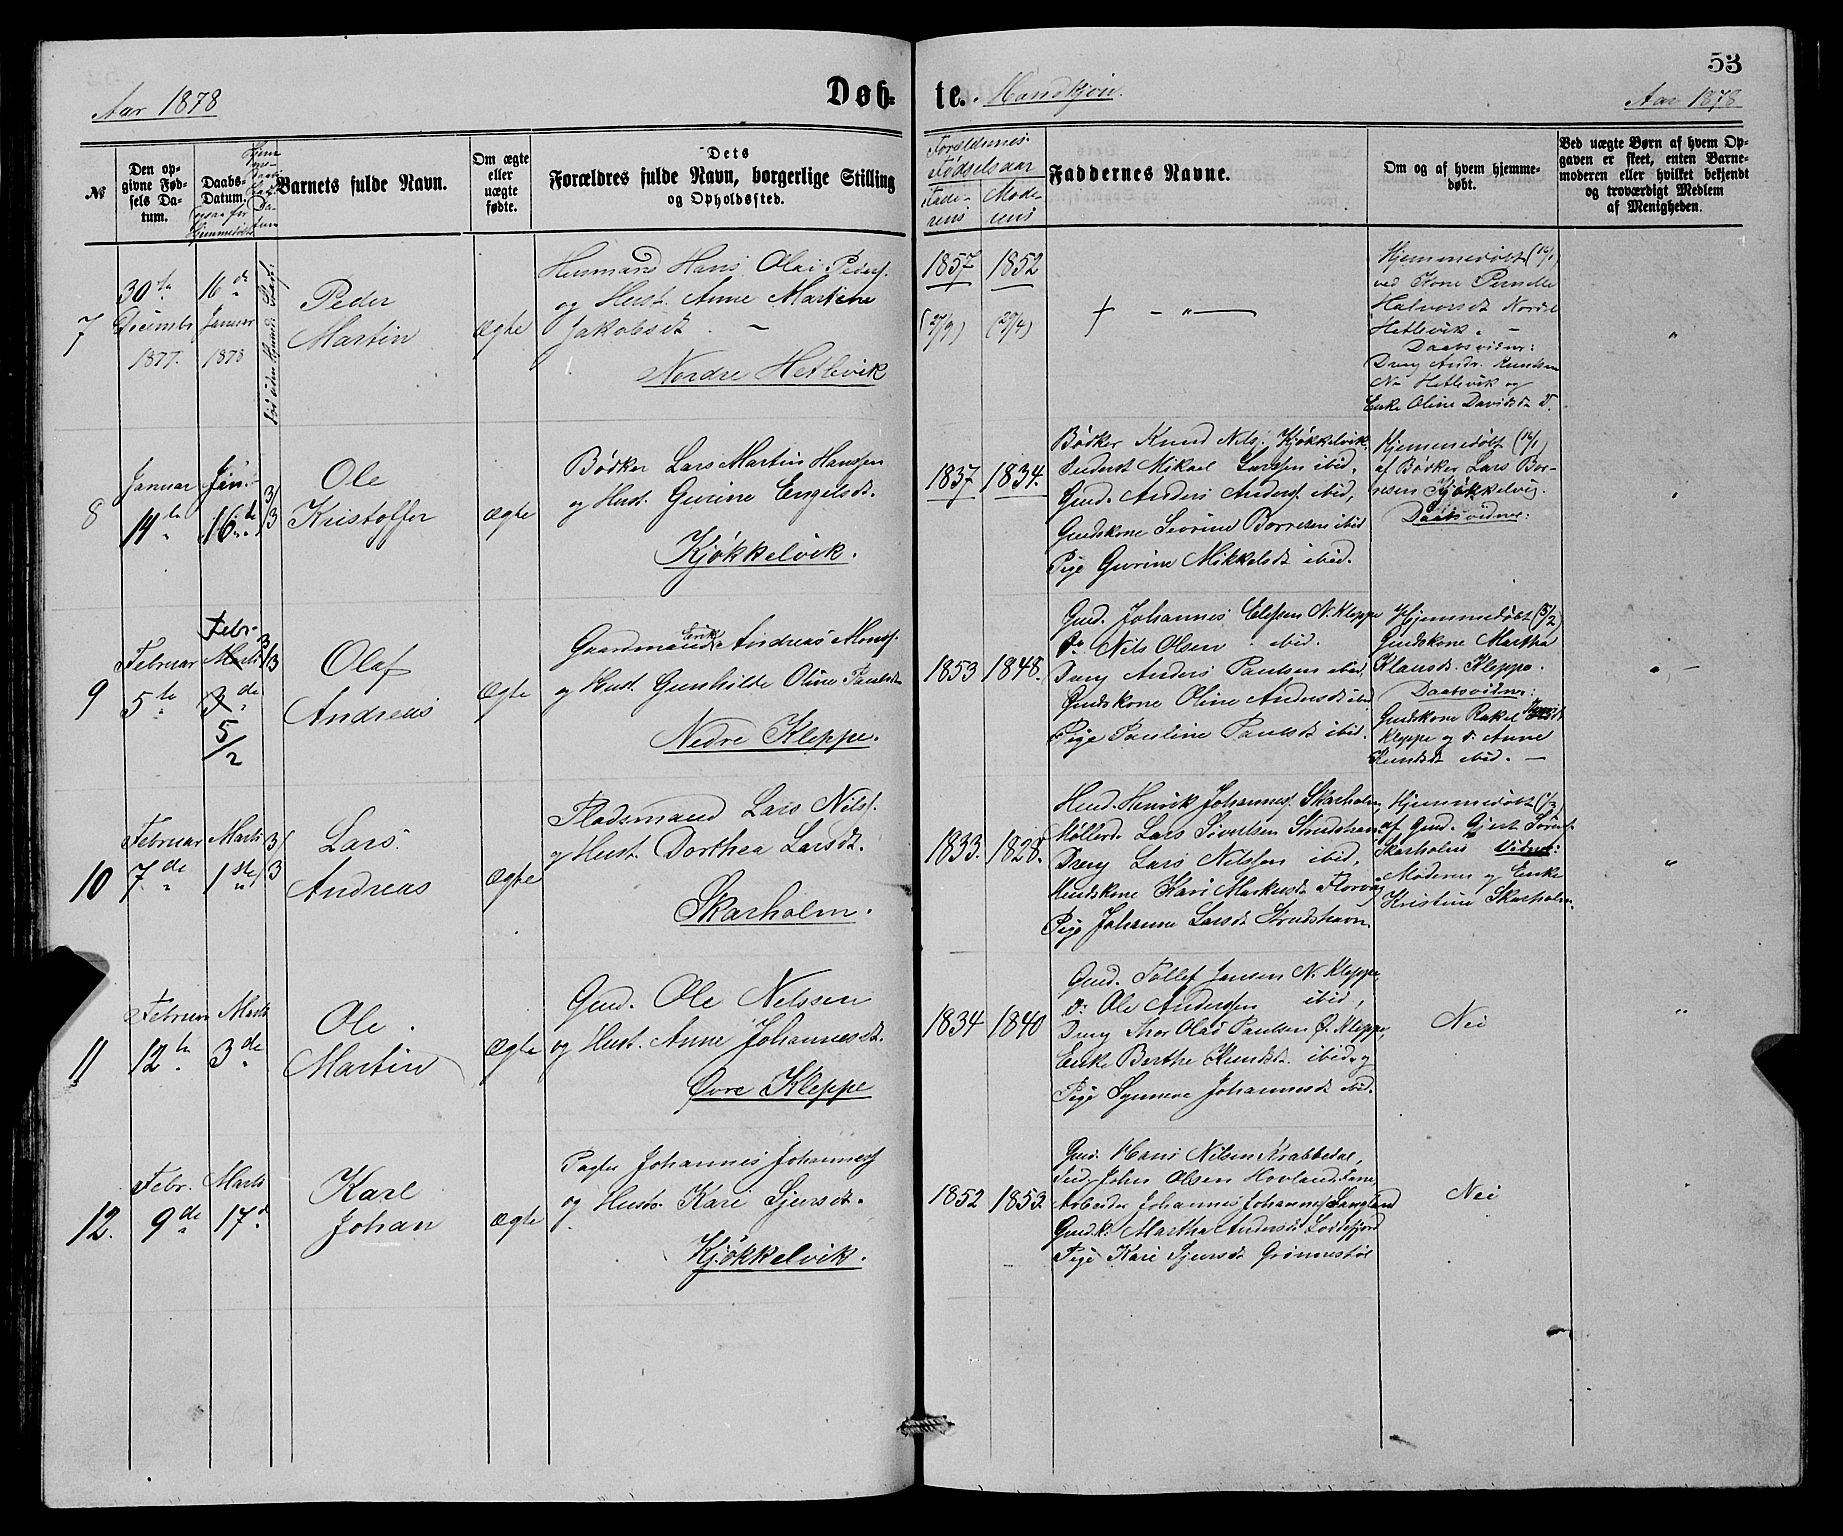 53
Aar 1878
Døb-
te. Mandkjøn.
Aar 1878
№
Den op-
givne Fød-
sels Da-
tum.
Daabs-
Datum.
Barnets fulde Navn.
Om ægte
eller
uægte
fødte.
Dets
Forældres fulde Navn, borgerlige Stilling
og Opholdssted.
Forældrenes
Fødselsaar
Fade-
rens
Mode-
rens
Faddernes Navne.
Om og af hvem hjemme-
døbt.
Ved uægte Børn af hvem Op-
gaven er skeet, enten Barne-
moderen eller hvilket bekjendt
og troværdigt Medlem
af Menigheden.
7
30te
Decembr
1877.
16de
Januar
1878
Peder
Martin
Ægte
Huusmand Hans Olai Peders.
og Hust. Anne Martine
Jakobsdt. –
Nordre Hetlevik
1857
(27/9)
1852
(29/4)
+ – " –
Hjemmedøbt (16/1)
ved Kone Pernille
Halvorsdt Nordre
Hetlevik. –
Daabsvidner:
Dreng Andr. Knudsen
N. Hetlevik og
Enke Oline Davidsdt D.
"
8
Januar
14te
Jan.
16de
3/3
Ole
Kristoffer
Ægte
Bødker Lars Martin Hansen
og Hust. Gurine Engelsdt.
Kjøkkelvik.
1837
1834.
Bødker Knud Nils. Kjøkkelvik
Inderst Mikael Larssen ibid.
Gmd. Anders Anders. ibid,
Gmdskone Sevrine Borresen ibid
Pige Gurine Mikkelsdt ibid.
Hjemmedøbt (16/1)
af Bødker Lars Bor-
resen Kjøkkelvig.
Daabsvidner:
"
9
Februar
5te
Febr.
Marts
3de
5/2
3/3
Olaf
Andreas
Ægte
Gaardmand Erik Andreas Mons.
og Hust. Gunhilde Oline Paulsdt
Nedre Kleppe.
1853
1848.
Gmd. Johannes Elefsen N. Kleppe
Do Nils Olsen ibid.
Dreng Anders Paulsen ibid,
Gmdskone Oline Andersdt ibid
Pige Pauline Paulsdt ibid.
Hjemmedøbt (5/2)
Gmdskone Martha
Klausdt. Kleppe.
Daabsvidner:
Gmdskone Rakel
Kleppe og D. Anne
Knudsdt ibid. –
" –
10
Februar
7de
Marts
1ste
3/3
Lars
Andreas
Ægte
Pladsmand Lars Nils.
og Hust. Dorthea Larsdt.
Skarholm.
1833.
1828.
Hmd. Henrik Johannes. Skarholm,
Møllerd. Lars Sivertsen Strudshavn,
Dreng Lars Nilssen ibid,
Hmdskone Kari Markusdt Florvåg
Pige Johanne Larsdt Strudshavn
Hjemmedøbt (1/3)
af Gmd. Gjert Sørens.
Skarholm Vidner:
Moderen og Enke
Kristine Skarholm.
"
11
Februar
12te
Marts
3de
Ole
Martin
Ægte
Gmd. Ole Nelssen
og Hust. Anne Johannesdt.
Øvre Kleppe
1834
1840
Gmd. Tollef Jansen N. Kleppe,
D: Ole Anderssen ibid,
Dreng Thor Olai Paulsen Ø. Kleppe,
Enke Berthe Knudsdt. ibid. og
Pige Synneve Johannesdt ibid.
Nei
"
12.
Febr.
9de
Marts
17d
Karl
Johan
Ægte
Pagter Johannes Johannes
og Hustr. Kari Sjursdt.
Kjøkkelvik.
1852
1853
Gmd. Hans Nilsen Krabbedal,
Ind. John Olsen Hovland,
Arbeider Johannes Johannes Langland
Gmdk. Martha Andersdt Loddefjord
Pige Kari Sjursdt Grønnestøl
Nei
"